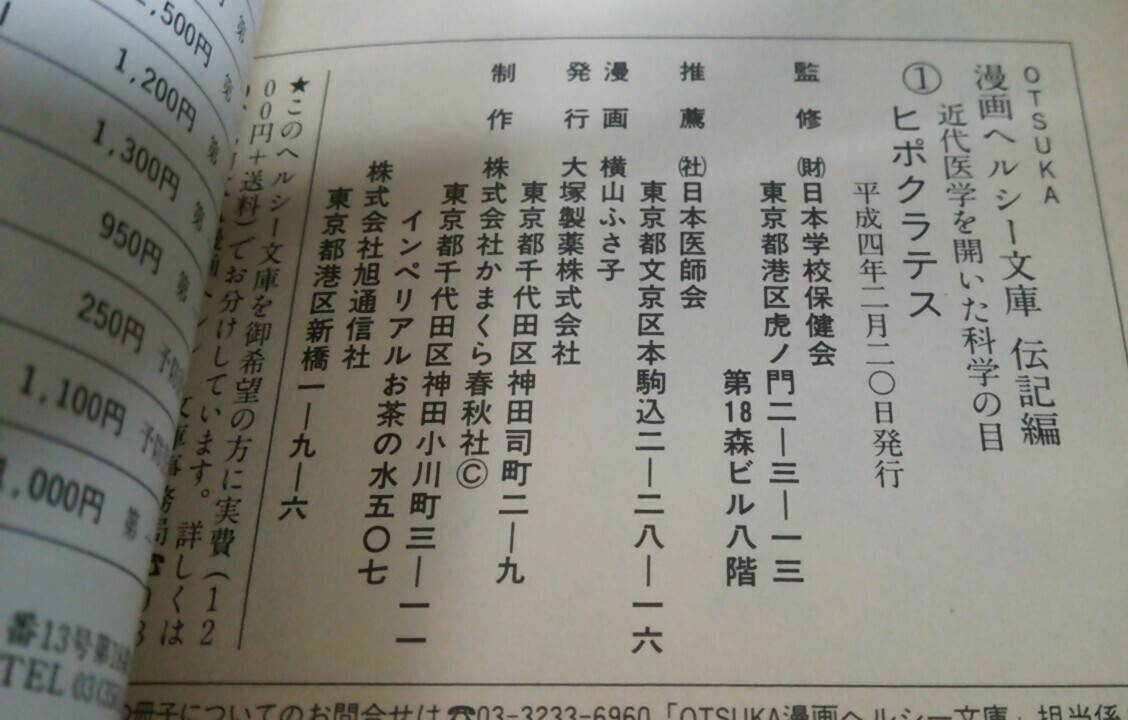 OTSUKA
漫画ヘルシー文庫 伝記編
近代医学を開いた科学の目
①ヒポクラテス
平成四年二月二〇日発行
監修 ㈶日本学校保健会
東京都港区虎ノ門二―三―一三
第18森ビル八階
推薦 ㈳日本医師会
東京都文京区本駒込二―二八―一六
漫画 横山ふさ子
発行 大塚製薬株式会社
東京都千代田区神田司町二―九
制作 株式会社かまくら春秋社©
東京都千代田区神田小川町三―一一
インペリアルお茶の水五〇七
株式会社旭通信社
東京都港区新橋一―九―六
★このヘルシー文庫を御希望の方に実費(12
00円+送料)でお分けしています。詳しくは
の冊子についてのお問合せは☎03-3233-6960「OTSUKA漫画ヘルシー文庫」担当係
,500円
1,200円
1,300円
950円
250円
1,100円
1,000円 第
番13号第
TEL 03